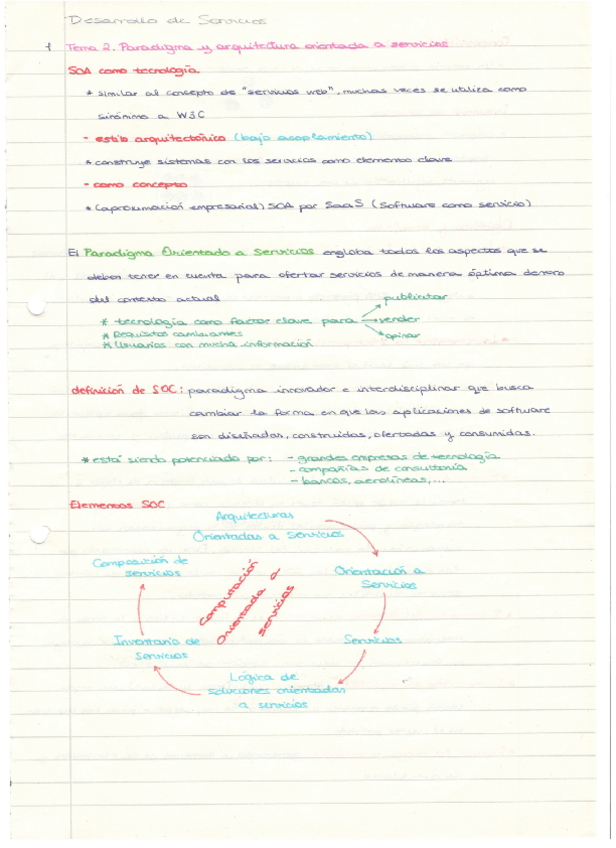 Desarrollo de Servicios
1 Tema 2. Paradigma y arquitectura orientada a servicios
SOA como tecnología
* similar al concepto de "servicios web", muchas veces se utiliza como
sinónimo a W3C
- estilo arquitectónico (bajo acoplamiento)
* construye sistemas con los servicios como elemento clave
- como concepto
* (aproximación empresarial) SOA por SaaS (Software como servicio)
El Paradigma Orientado a Servicios engloba todos los aspectos que se
deben tener en cuenta para ofertar servicios de manera óptima dentro
del contexto actual
publicitar
* tecnología como factor clave para vender
* Requisitos cambiantes
opinar
* Usuarios con mucha información
definición de SOC: paradigma innovador e interdisciplinar que busca
cambiar la forma en que las aplicaciones de software
son diseñadas, construidas, ofertadas y consumidas.
* está siendo potenciado por: - grandes empresas de tecnología
- compañías de consultoría
- bancos, aerolíneas,...
Elementos SOC
Arquitecturas
Orientadas a Servicios
Orientación a
Servicios
Servicios
Lógica de
soluciones orientadas
a servicios
Inventario de
Servicios
Composición de
servicios
Computación
Orientada a
servicios